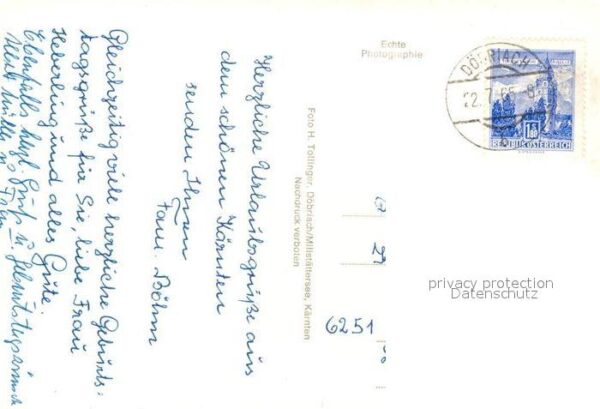 Herzliche Urlaubsgrüße aus
dem schönen Kärnten
senden Ihnen
Fam. Böhm
Gleichzeitig viele herzliche Geburts-
tagsgrüße für Sie, liebe Frau
Heberling und alles Gute.
Ebenfalls herzl. Grüße u.
Foto H. Tollinger, Döbriach/Millstättersee, Kärnten
Nachdruck verboten
Echte
Photographie
DÖBRIACH
22.7.65-8
REPUBLIK ÖSTERREICH
6251
privacy protection
Datenschutz